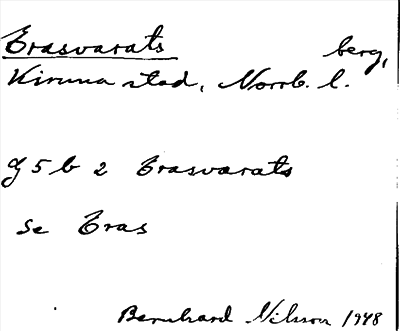 Erasvarats berg,
Kiruna stad, Norrb. l.
G 5 b 2 Erasvarats
se Eras
Bernhard Nilsson 1948